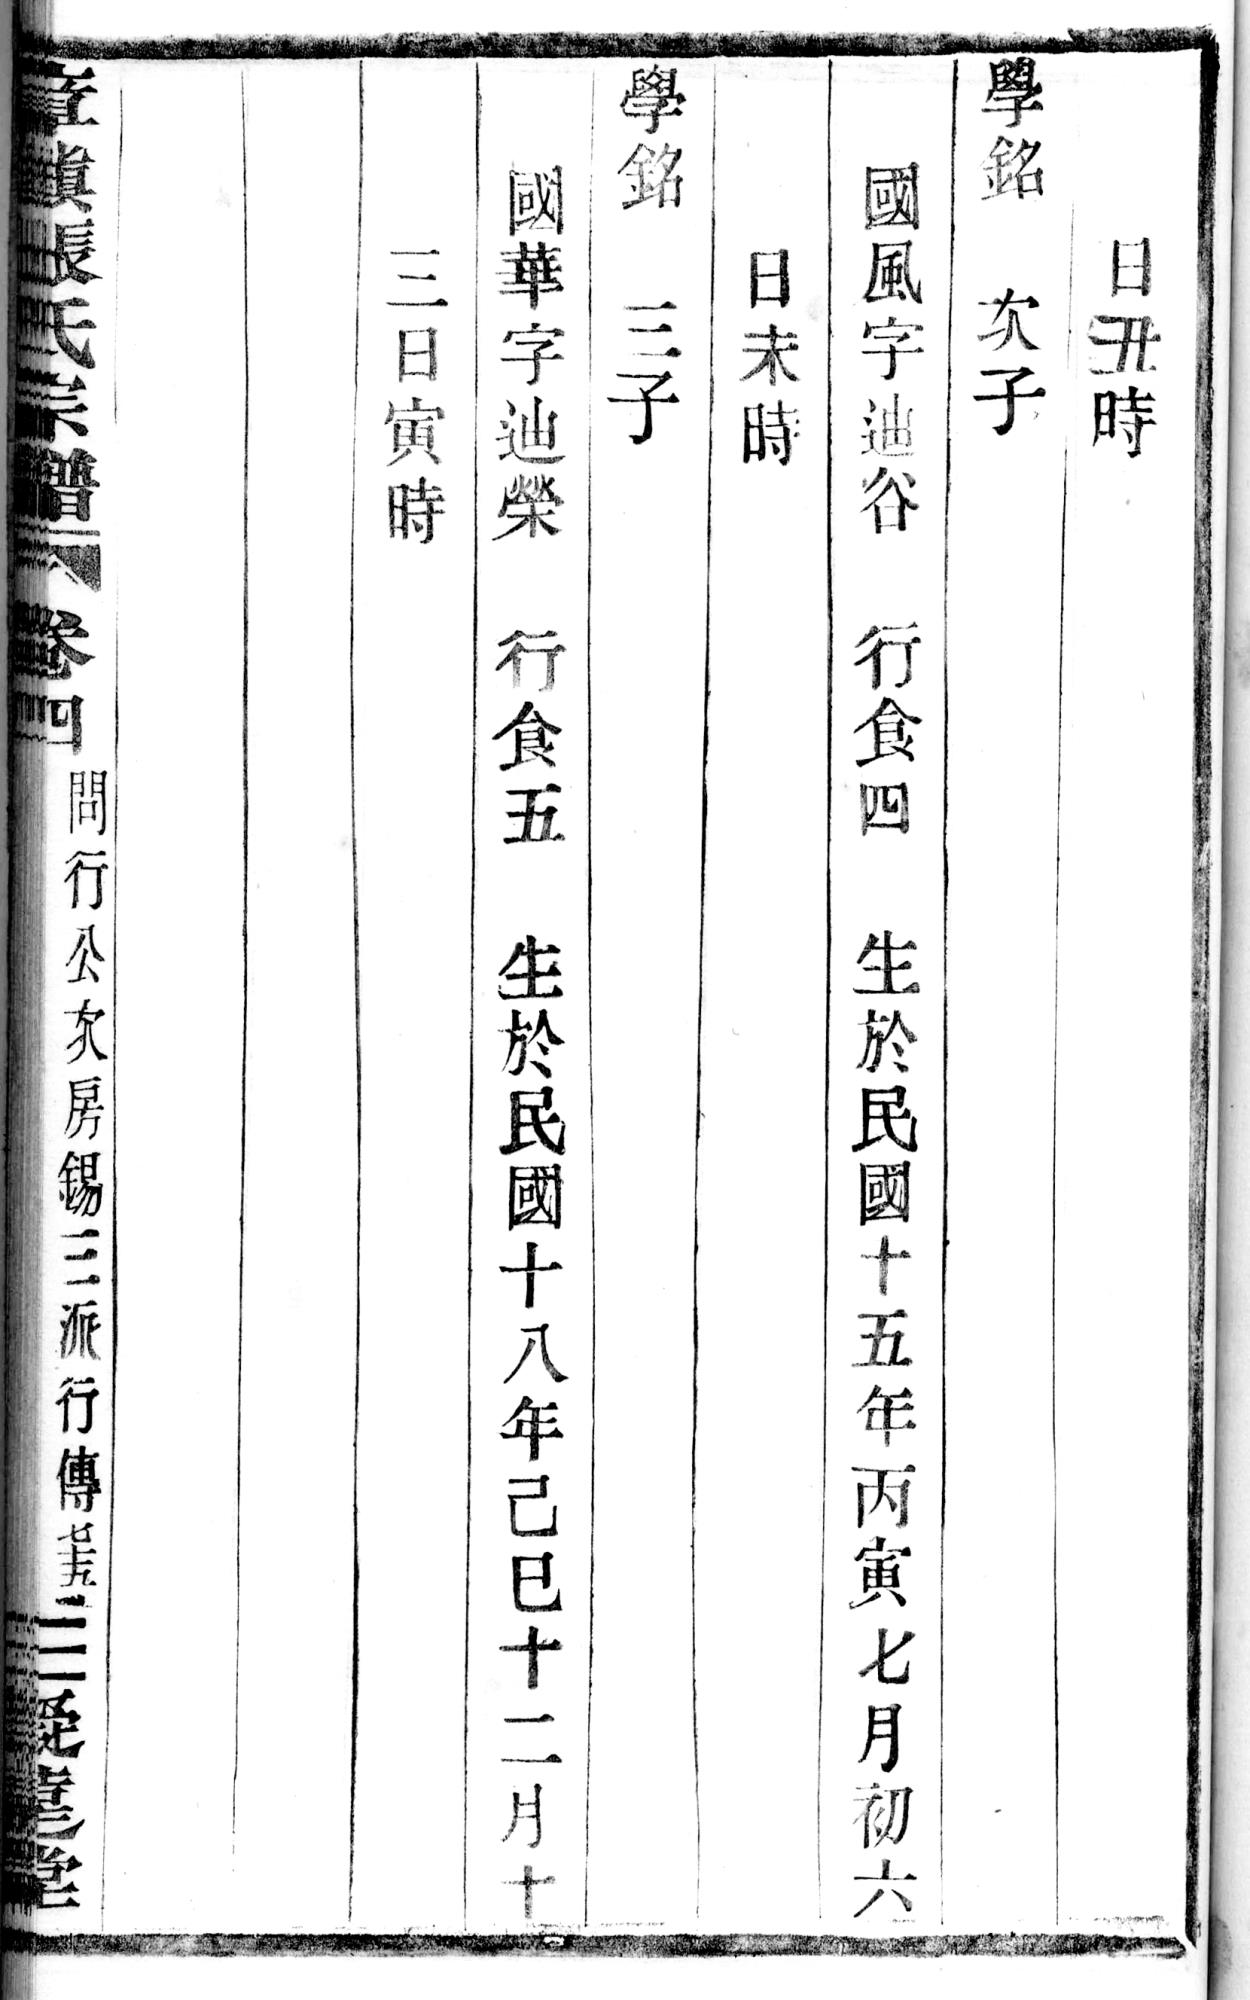 日丑時
學銘　次子
國風字迪谷　行食四　生於民國十五年丙寅七月初六
日未時
學銘　三子
國華字迪榮　行食五　生於民國十八年己巳十二月十
三日寅時
張氏宗譜　卷四　問行公次房錫三派行傳　三　堂